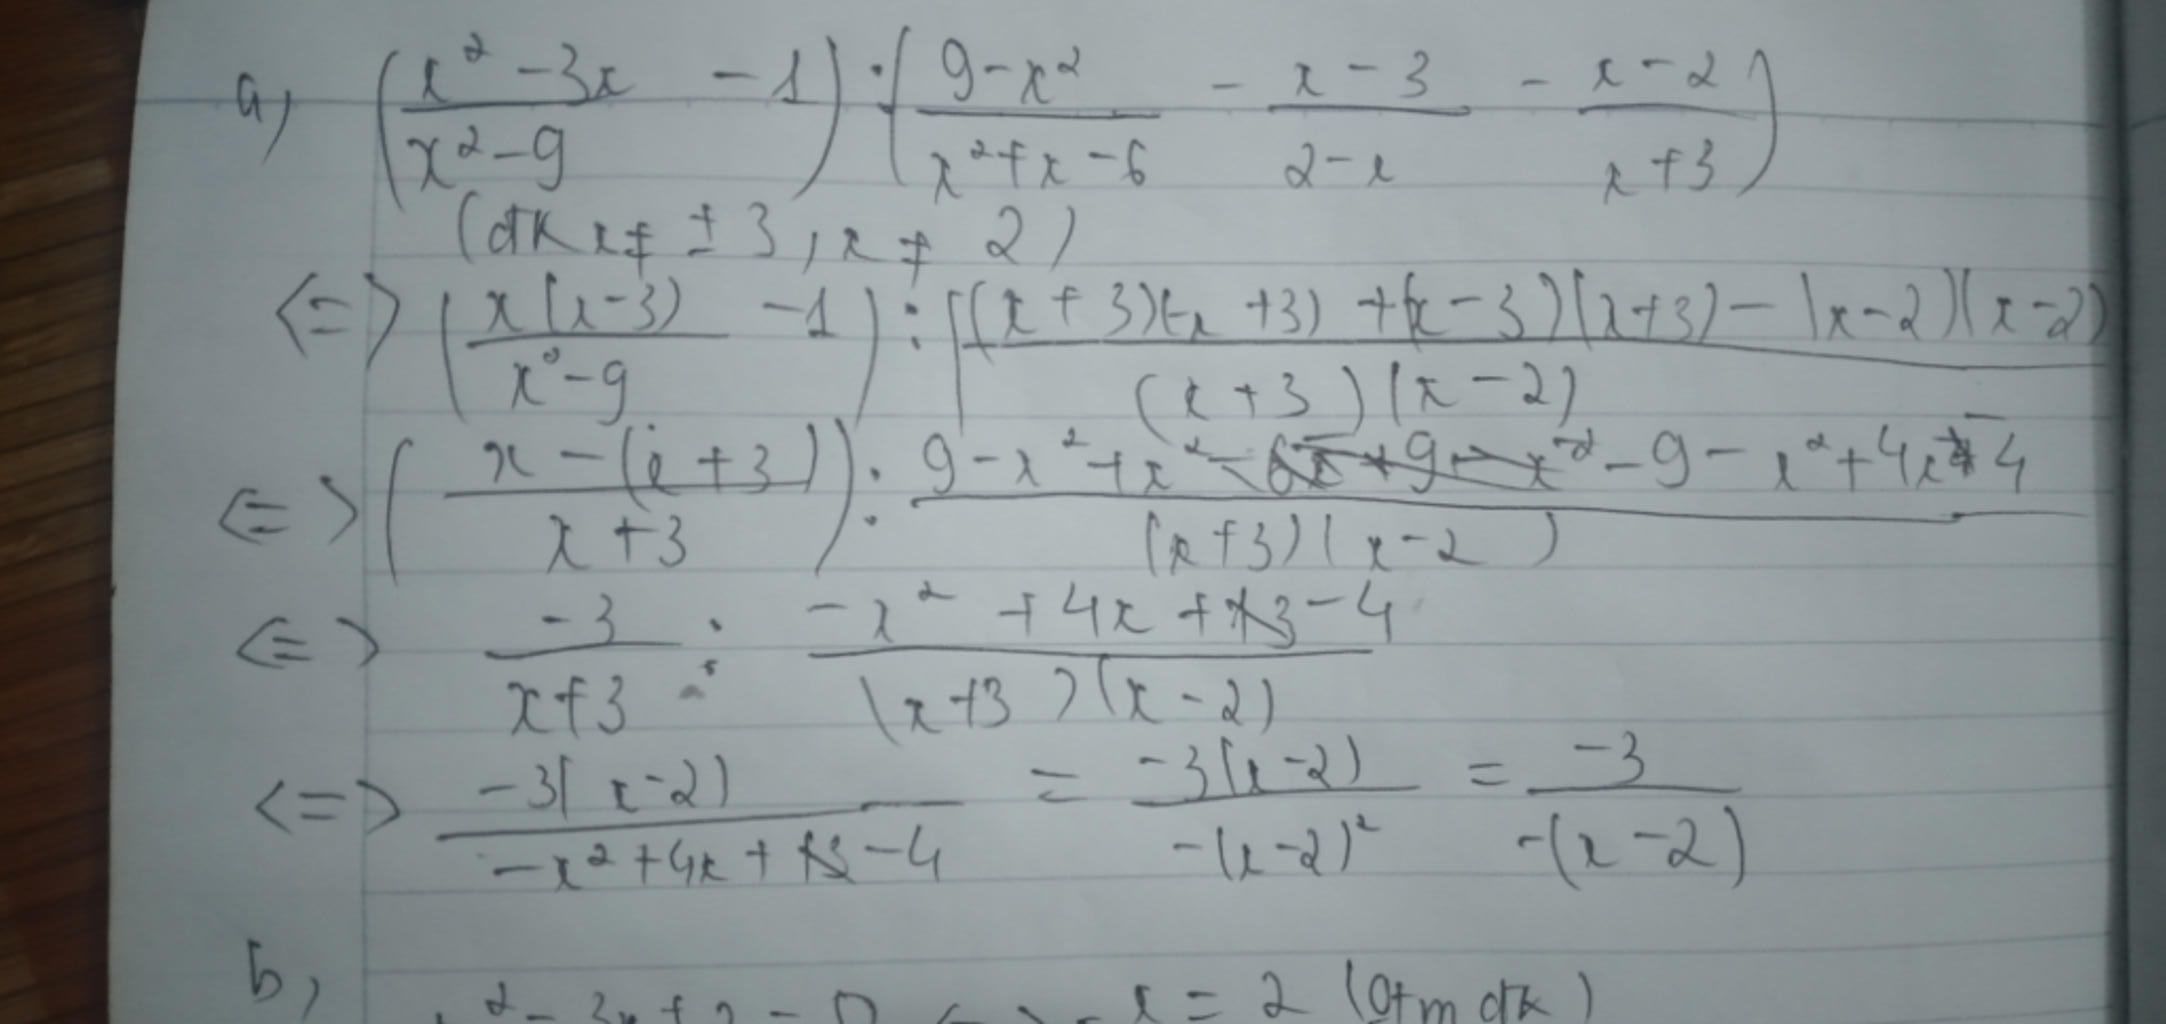 a, ((x² - 3x)/(x² - 9) - 1) : ((9 - x²)/(x² + x - 6) - (x - 3)/(2 - x) - (x - 2)/(x + 3))
(đk x ≠ ± 3, x ≠ 2)
<=> ((x(x - 3))/(x² - 9) - 1) : ((x + 3)(-x + 3) + (x - 3)(x + 3) - (x - 2)(x - 2))/((x + 3)(x - 2))
<=> ((x - (x + 3))/(x + 3)) : (9 - x² + x² - 9 - x² + 4x - 4)/((x + 3)(x - 2))
<=> (-3)/(x + 3) : (-x² + 4x - 4)/((x + 3)(x - 2))
<=> (-3(x - 2))/(-x² + 4x - 4) = (-3(x - 2))/(-(x - 2)²) = (-3)/(-(x - 2))
b,
x = 2 (